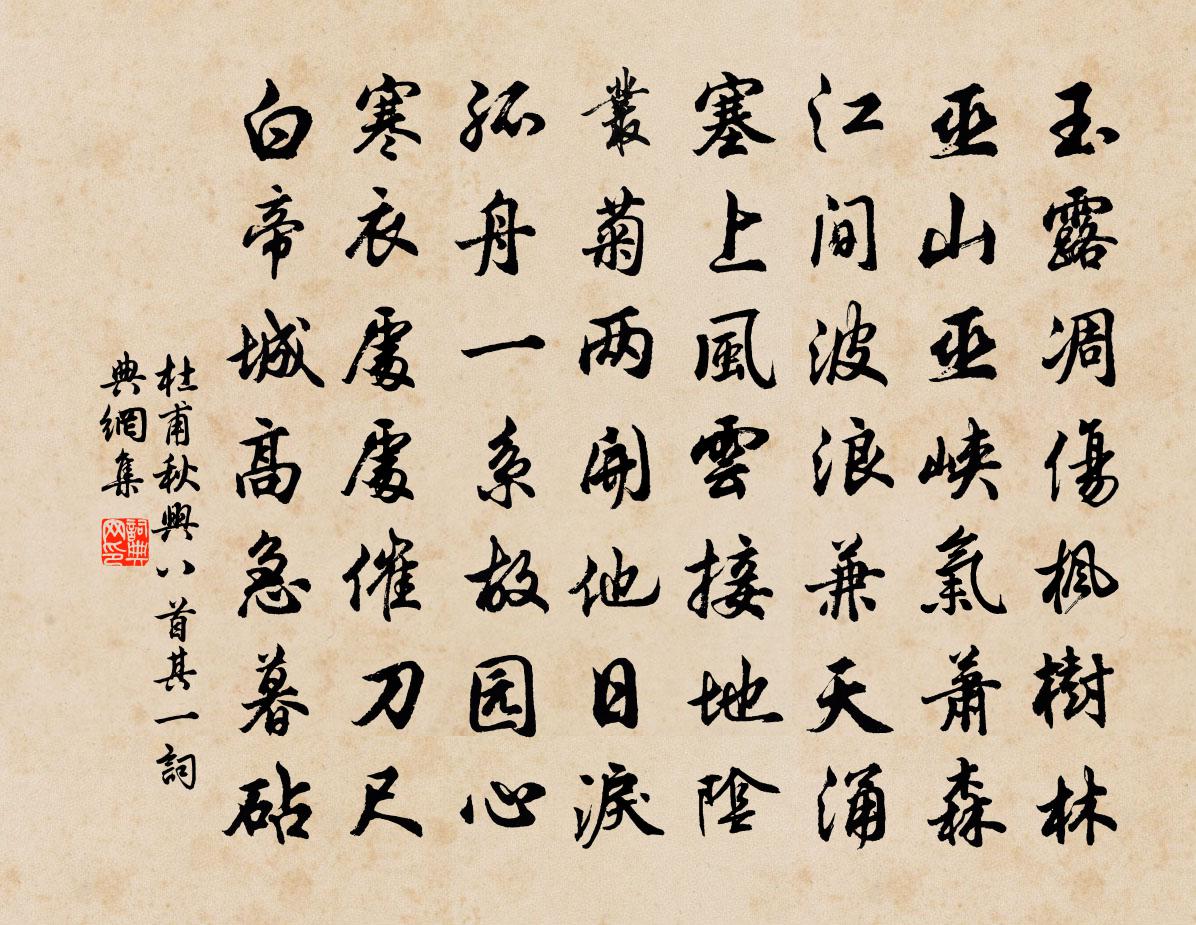 玉露凋傷楓樹林
巫山巫峽氣蕭森
江間波浪兼天涌
塞上風雲接地陰
叢菊两開他日淚
孤舟一系故园心
寒衣處處催刀尺
白帝城高急暮砧
杜甫秋興八首其一詞
典網集
詞典
网印